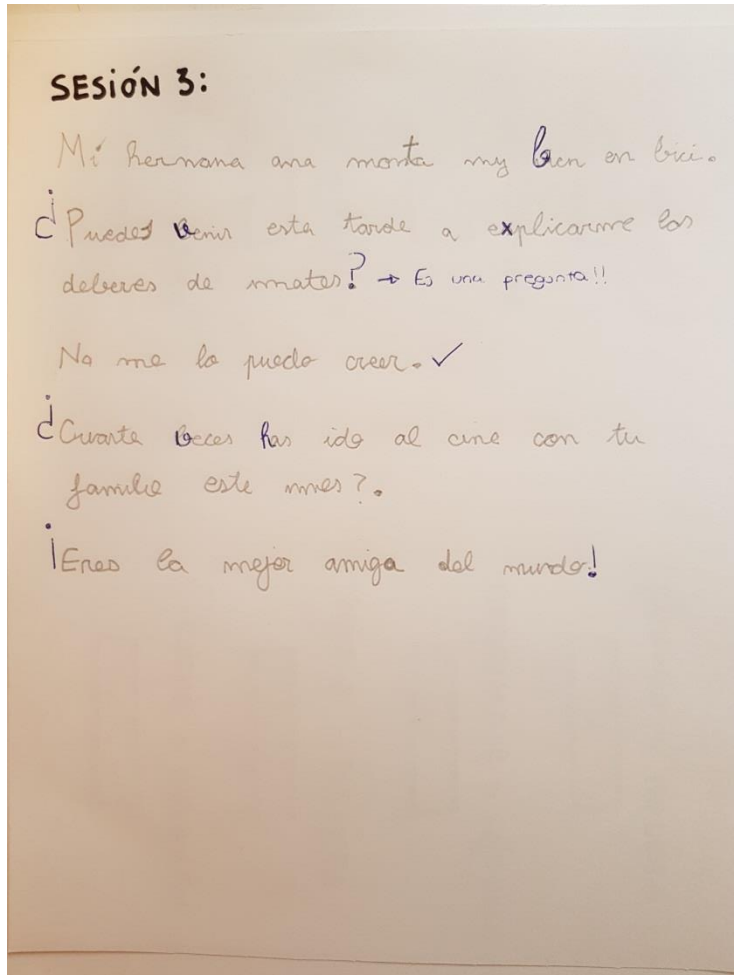 SESIÓN 3:
Mi hermana ana monta my bien en bici.
¿Puedes venir esta tarde a explicarme los
deberes de mates? → Es una pregunta!!
No me lo puedo creer. ✓
¿Cuante veces has ido al cine con tu
familia este mes?.
¡Eres la mejor amiga del mundo!